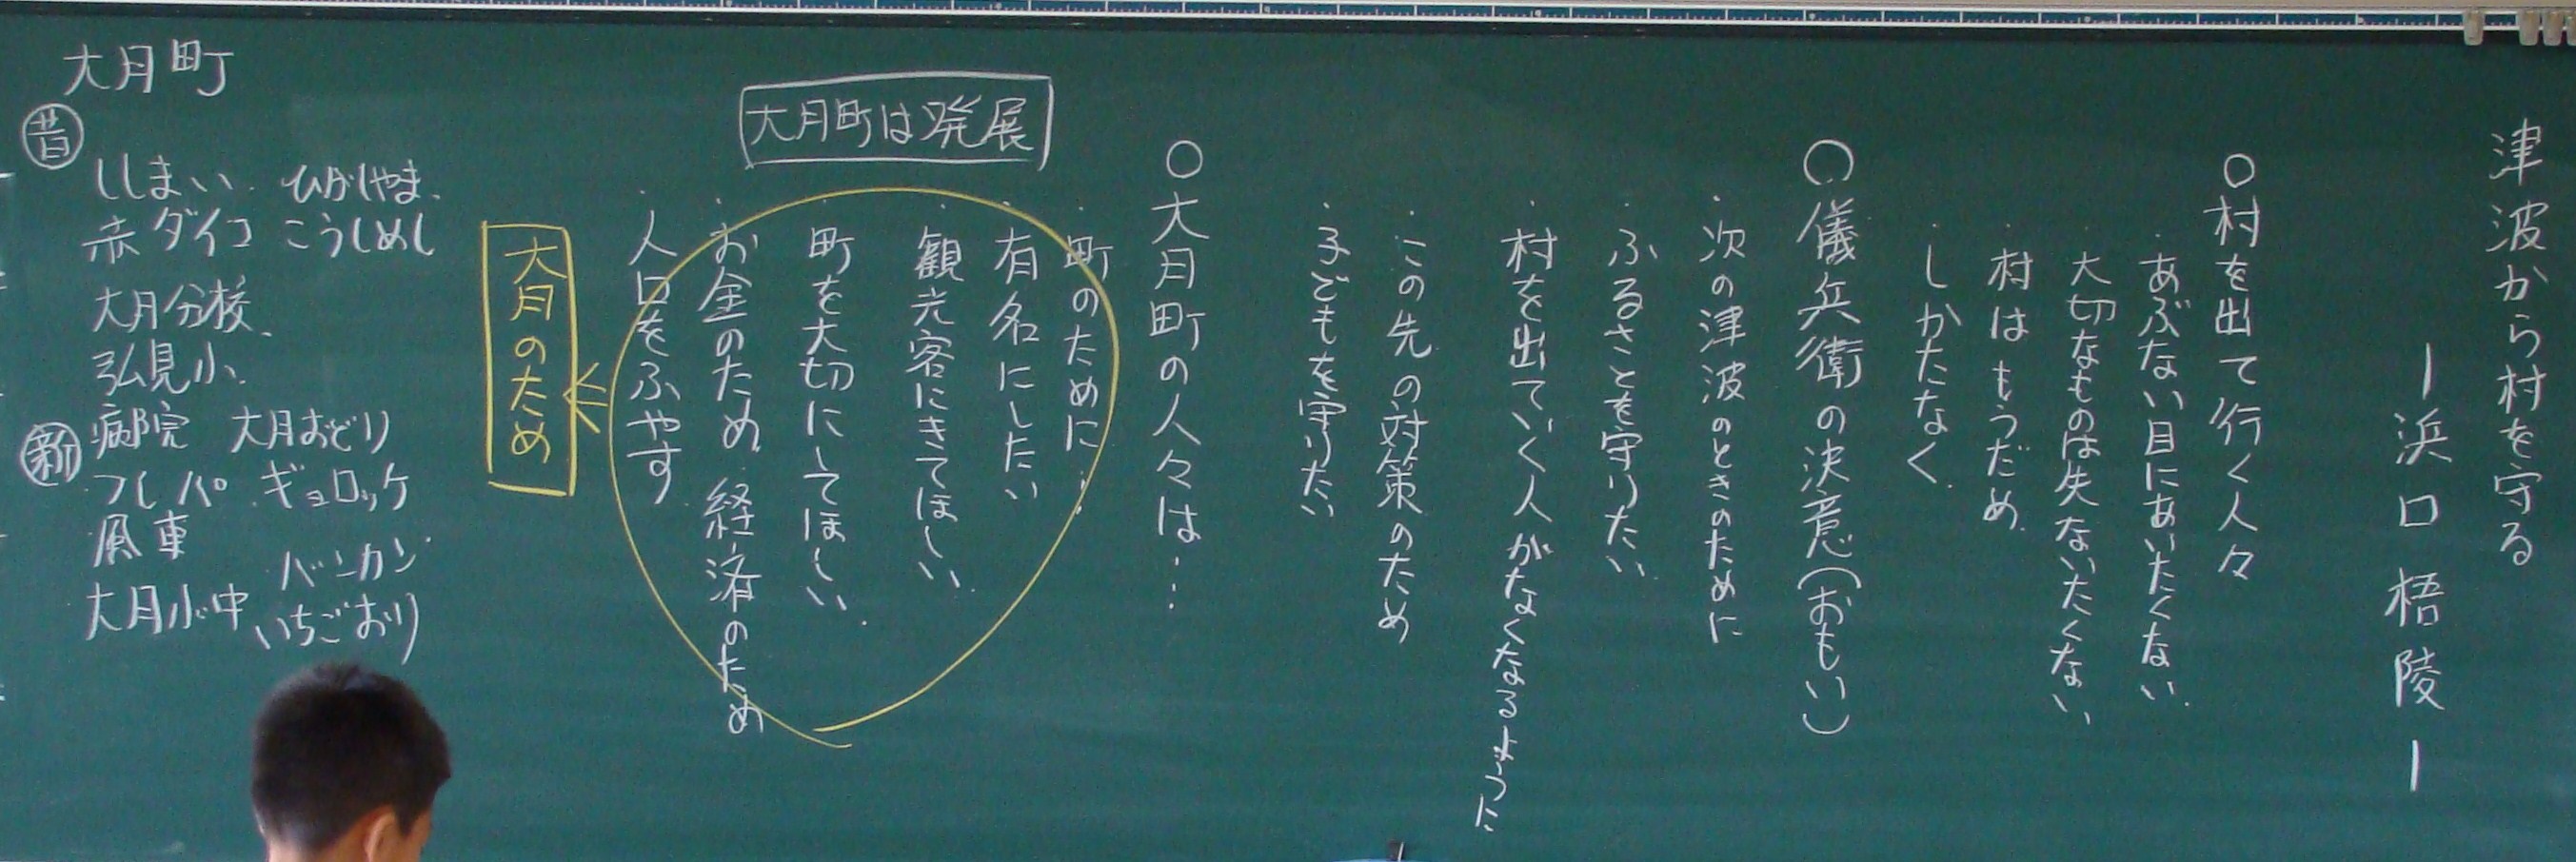 津波から村を守る
ー浜口梧陵ー
○村を出て行く人々
・あぶない目にあいたくない
・大切なものは失ないたくない
・村はもうだめ
・しかたなく
○儀兵衛の決意(おもい)
・次の津波のときのために
・ふるさとを守りたい
・村を出ていく人がなくなるように
・この先の対策のため
・子どもを守りたい
○大月町の人々は…
大月町は発展
・町のために…
・有名にしたい
・観光客にきてほしい
・町を大切にしてほしい
・お金のため 経済のため
・人口をふやす
大月のため
大月町
昔
ししまい ひがしやま
赤ダイコ こうしめし
大月分校
弘見小
新
病院 大月おどり
フレパ ギョロッケ
風車
バーガン
大月小中 いちごおり